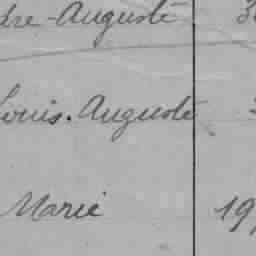 dre-Auguste 3
Louis. Auguste
Marie 19